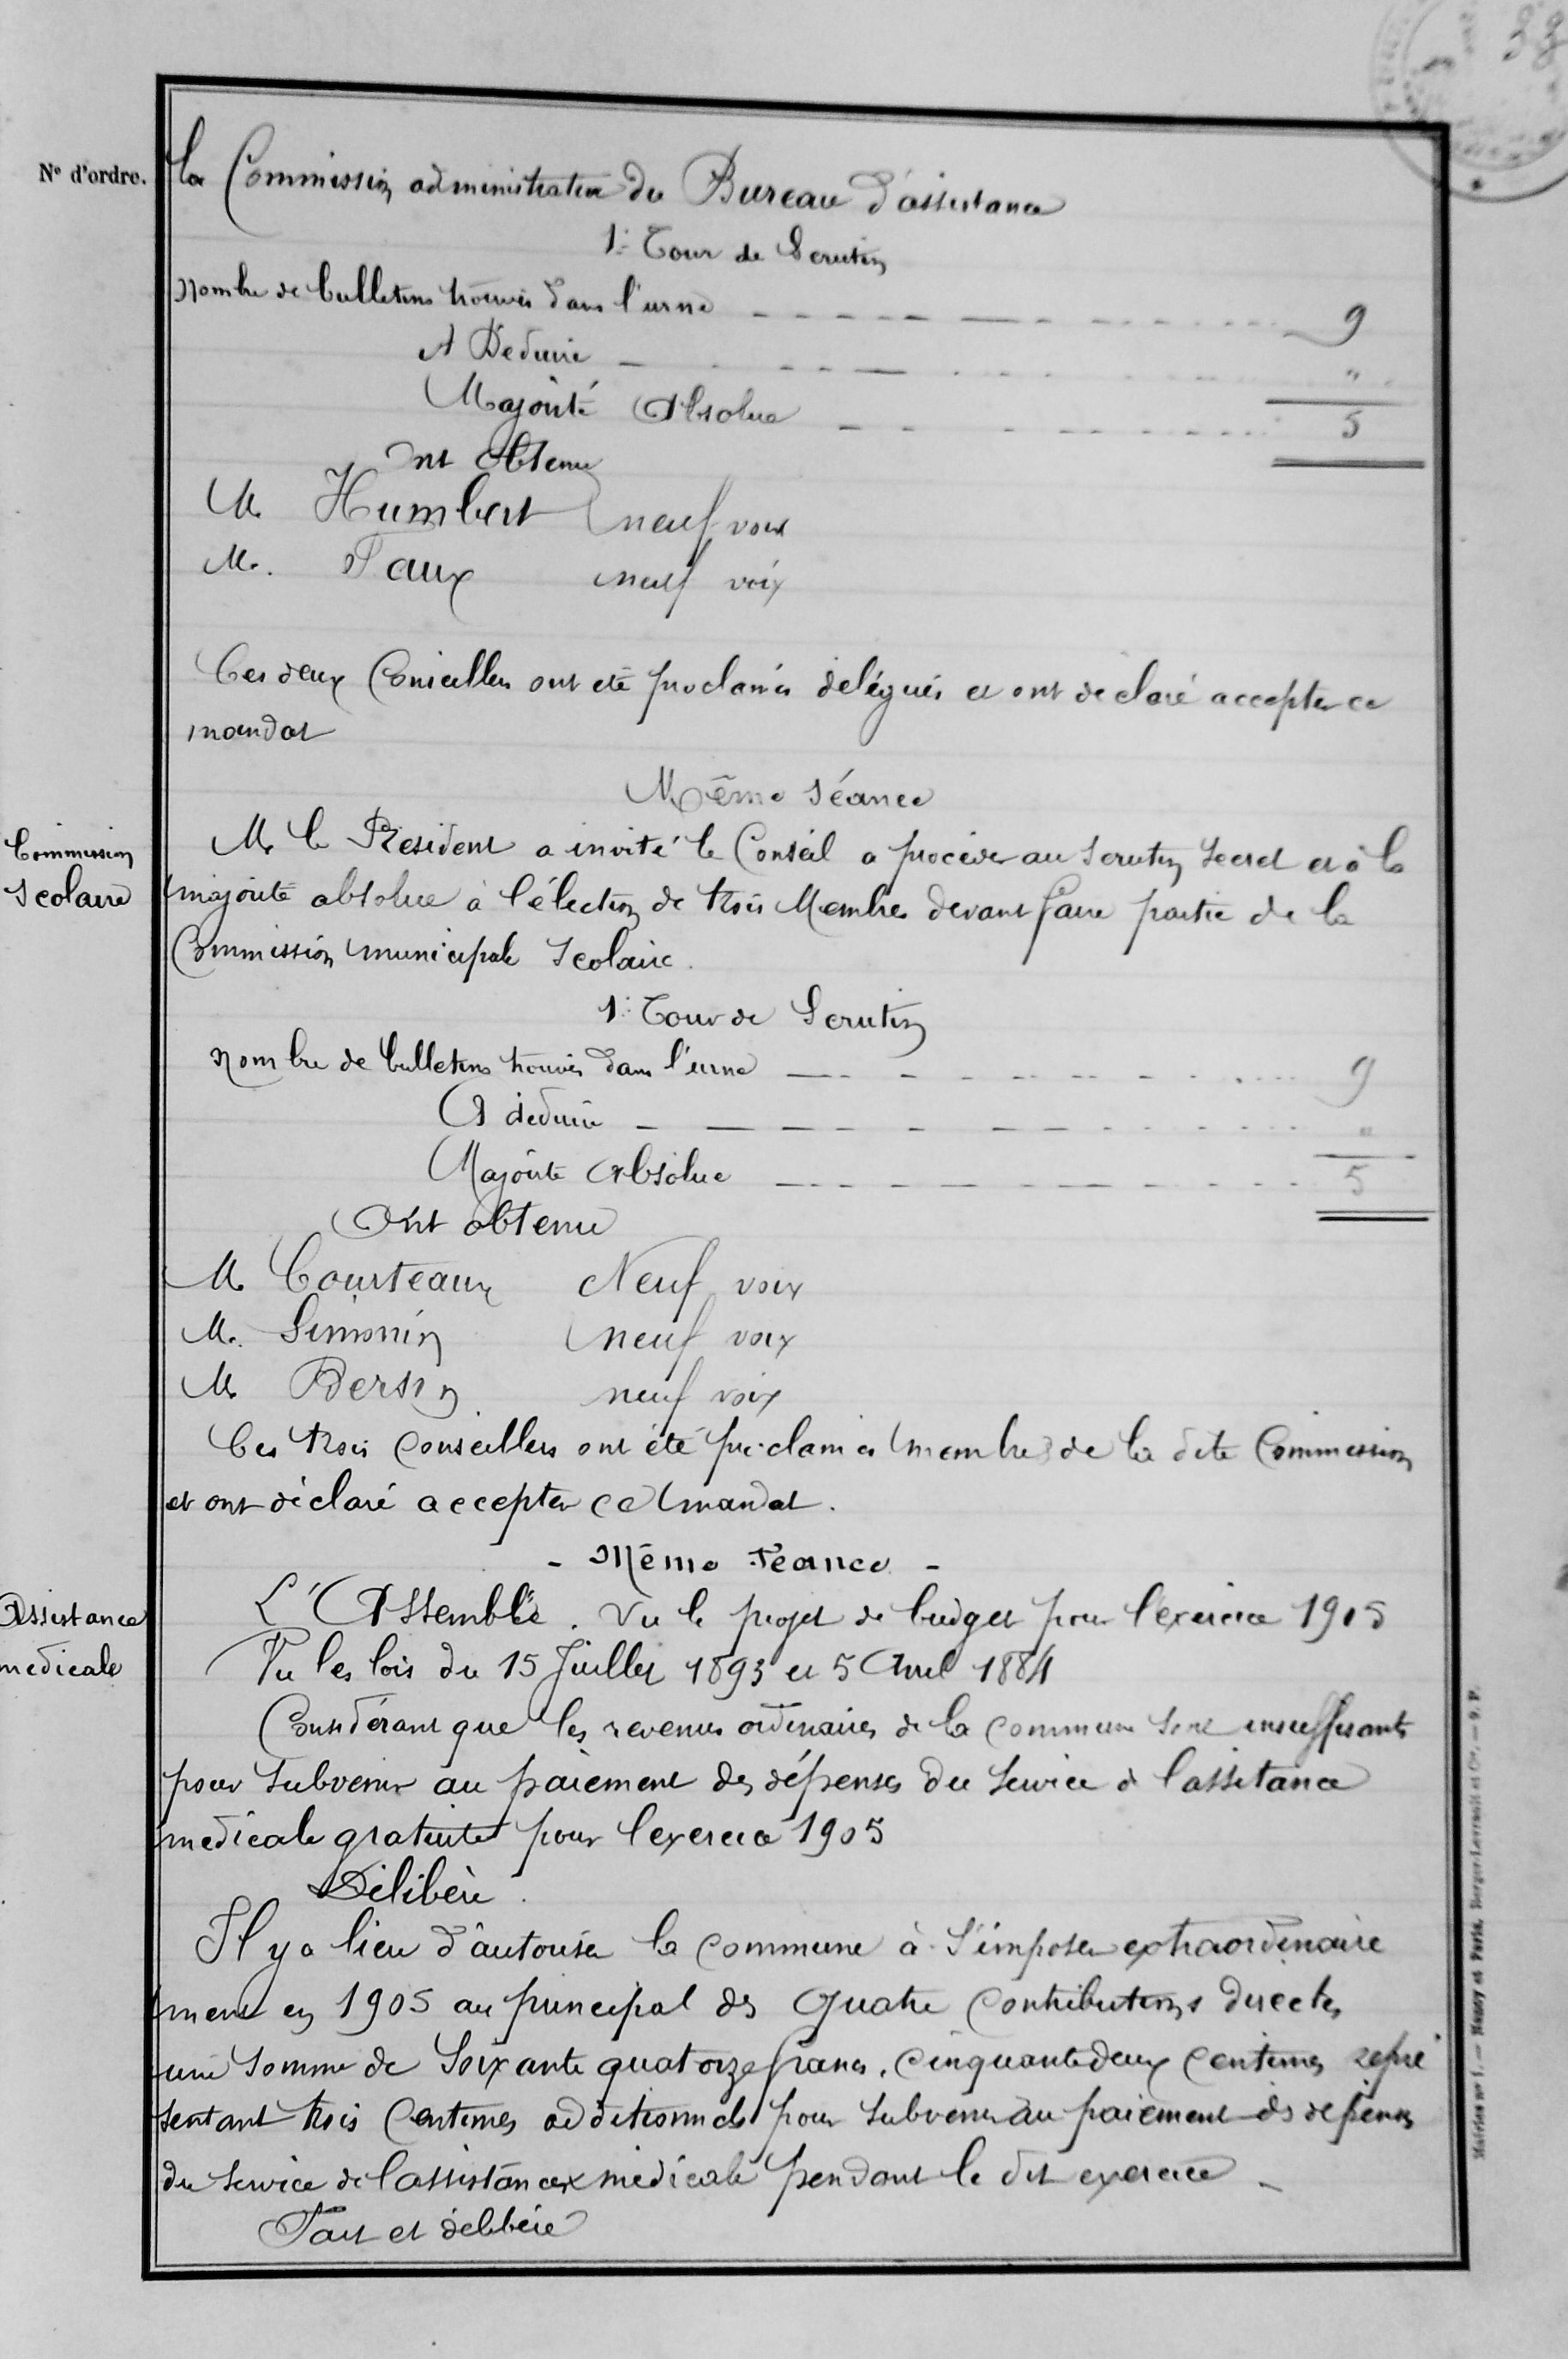 38
N° d'ordre.
la Commission administrative du Bureau d'assistance
1er Tour de Scrutin
Nombre de bulletins trouvés dans l'urne 9
A Déduire "
Majorité Absolue 5
Ont obtenu
M. Humbert neuf voix
M. Faux neuf voix
Ces deux Conseillers ont été proclamés délégués et ont déclaré accepter ce
mandat
Même Séance
Commission
Scolaire
M. le Président a invité le Conseil a procéder au scrutin secret et à la
majorité absolue à l'élection de trois Membres devant faire partie de la
Commission municipale Scolaire.
1er Tour de Scrutin
Nombre de bulletins trouvés dans l'urne 9
A déduire "
Majorité Absolue 5
Ont obtenu
M. Courteaux Neuf voix
M. Simonin neuf voix
M. Bersin neuf voix
Ces trois Conseillers ont été proclamés membres de la dite Commission
et ont déclaré accepter ce mandat.
- Même Séance -
Assistance
medicale
L'Assemblée. Vu le projet de budget pour l'exercice 1905
Vu les lois du 15 Juillet 1893 et 5 Avril 1884
Considérant que les revenus ordinaires de la commune sont insuffisants
pour subvenir au paiement des dépenses du service de l'assitance
médicale gratuite pour l'exercice 1905
Délibère.
Il y a lieu d'autoriser la commune à s'imposer extraordinaire
ment en 1905 au principal des quatre Contributions directes
une somme de Soixante quatorze francs, cinquante deux Centimes repré
sentant trois Centimes additionnels pour subvenir au paiement des dépenses
du service de l'assistance médicale pendant le dit exercice -
Fait et délibéré
Mairies n° 1. — Nancy et Paris, Berger-Levrault et Cie. — 9. P.